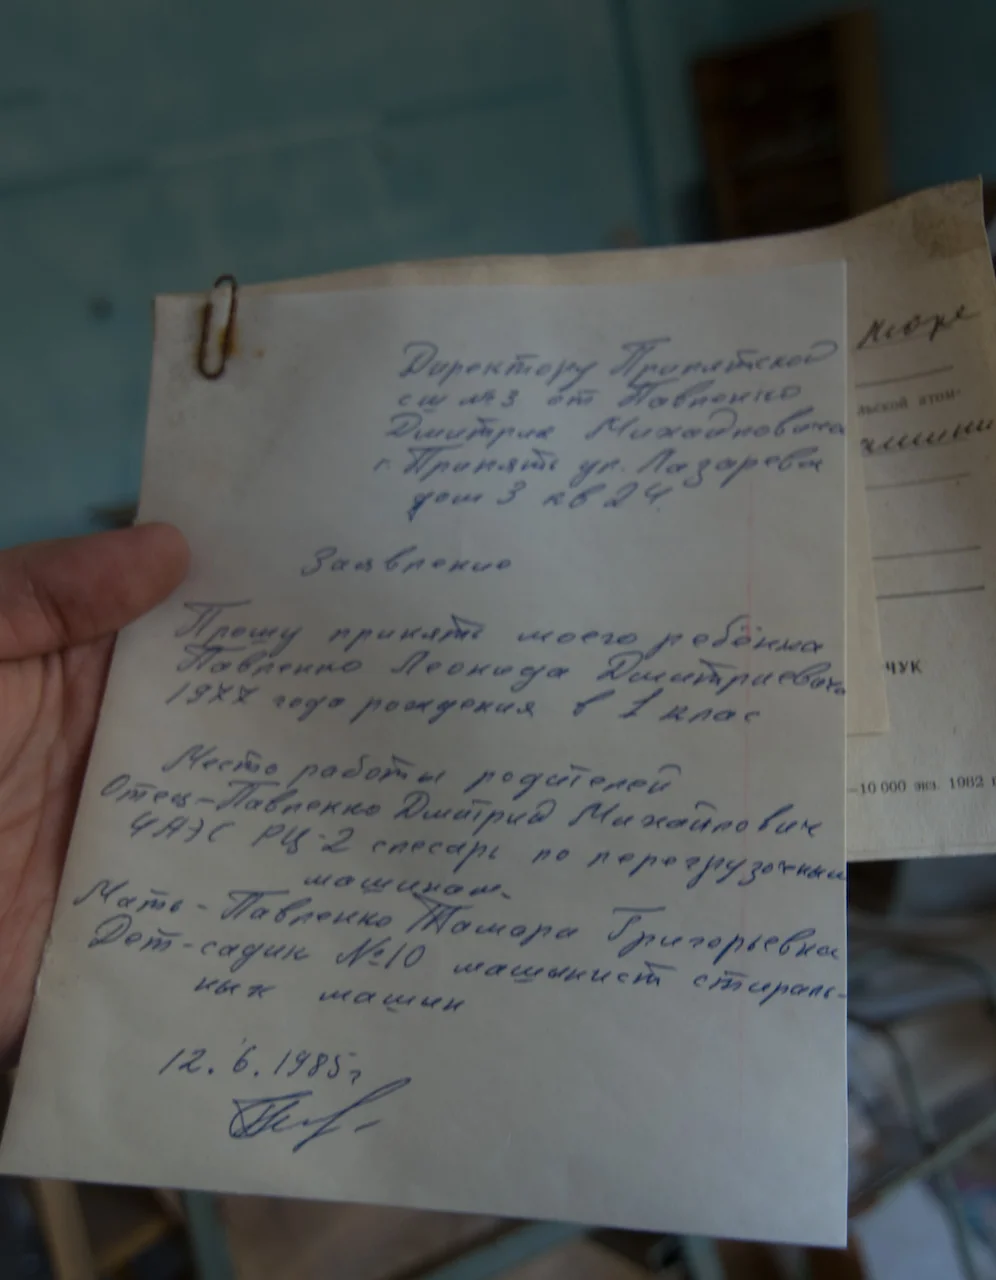 Директору Припятской
сш №3 от Павленко
Дмитрия Михайловича
г. Припять ул. Лазарева
дом 3 кв 24
Заявление
Прошу принять моего ребёнка
Павленко Леонида Дмитриевича
1977 года рождения в 1 клас
Место работы родителей
Отец-Павленко Дмитрий Михайлович
ЧАЭС РЦ-2 слесарь по перегрузочным
машинам.
Мать-Павленко Тамара Григорьевна
Дет-садик №10 машинист стираль-
ных машин
12.6.1985г
льской атом-
ЧУК
-10 000 экз. 1982 г